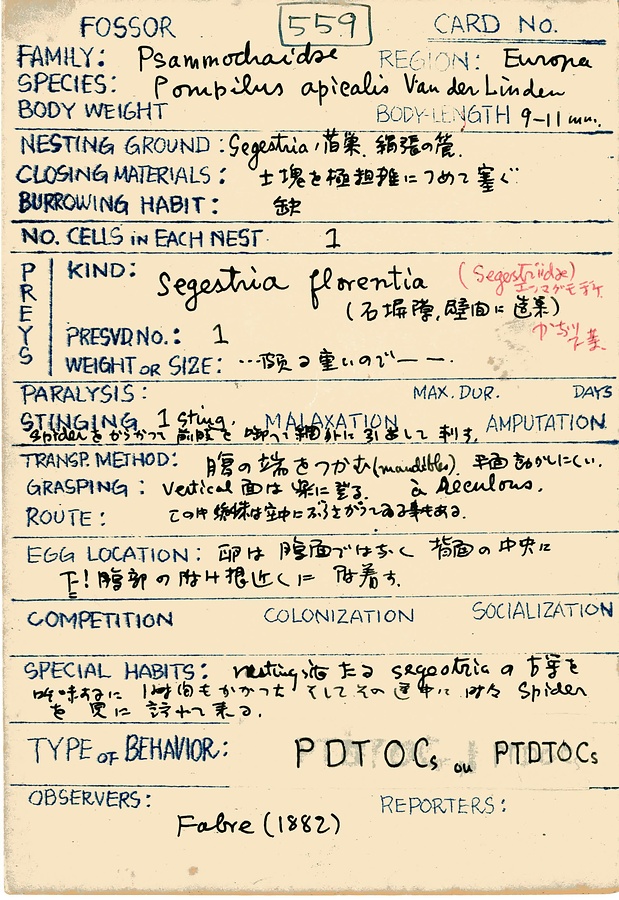 FOSSOR 559 CARD NO.
FAMILY: Psammocharidae REGION: Europa
SPECIES: Pompilus apicalis Van der Linden
BODY WEIGHT BODY-LENGTH 9-11 mm.
NESTING GROUND: Segestria, 古巣. 絹張の管.
CLOSING MATERIALS: 土塊を極担雑につめて塞ぐ
BURROWING HABIT: 缺
NO. CELLS in EACH NEST 1
PREYS
KIND: Segestria florentia (Segestriidae)
(石塀隙, 壁面に造巣)
PRESVD NO.: 1
WEIGHT OR SIZE: …頗る重いので――.
PARALYSIS: MAX. DUR. DAYS
STINGING 1 sting. MALAXATION AMPUTATION
Spiderをからかって前肢を噛って網外に引出して刺す.
TRANSP. METHOD: 腹の端をつかむ(mandibles). 平面動かしにくい.
GRASPING: Vertical 面は楽に登る. à Reculons.
ROUTE: この時蜘蛛は空中にぶらさがってゐる事もある.
EGG LOCATION: 卵は腹面ではなく 背面の中央に
下! 腹部の附け根近くに 附着す.
COMPETITION COLONIZATION SOCIALIZATION
SPECIAL HABITS: nesting 池たる segestria の古巣を
吟味するに 1時間もかかった そしてその途中に 時々 Spider
を 更に 訪れて来る.
TYPE OF BEHAVIOR: PDTOCs ou PTDTOCs
OBSERVERS: REPORTERS:
Fabre (1882)